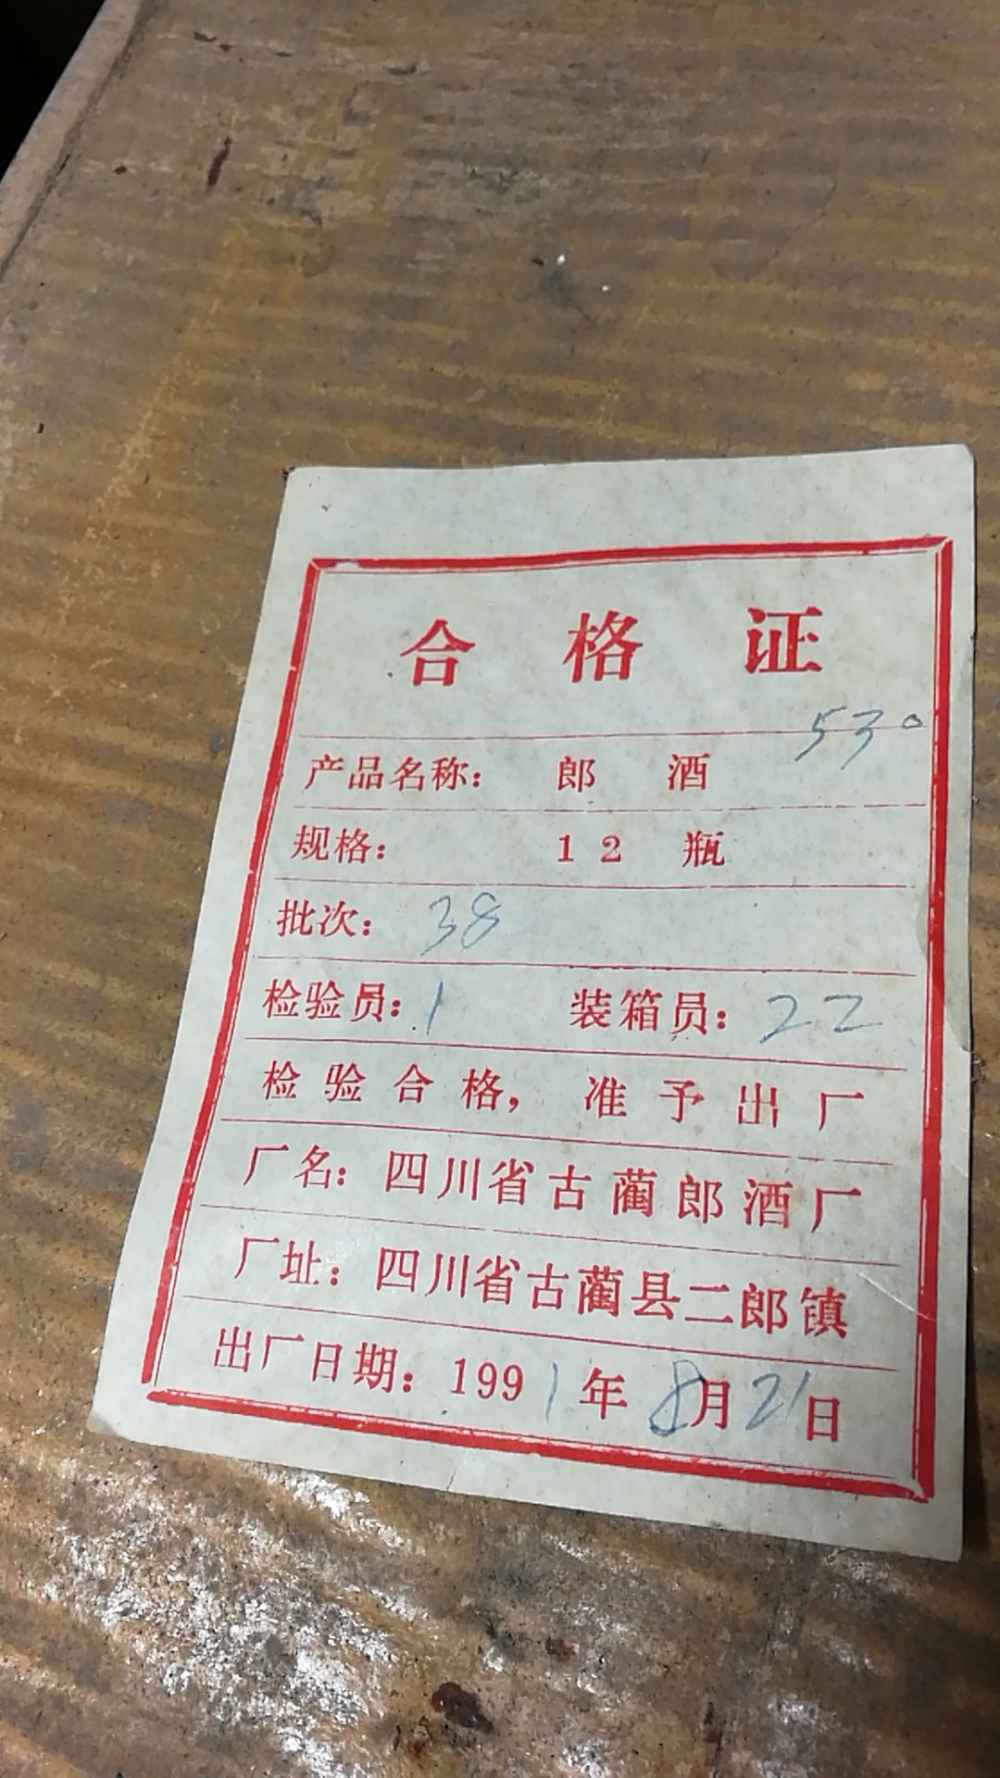 合格证
53°
产品名称: 郎 酒
规格: 12 瓶
批次: 38
检验员: 1 装箱员: 22
检验合格，准予出厂
厂名: 四川省古蔺郎酒厂
厂址: 四川省古蔺县二郎镇
出厂日期: 1991年8月21日